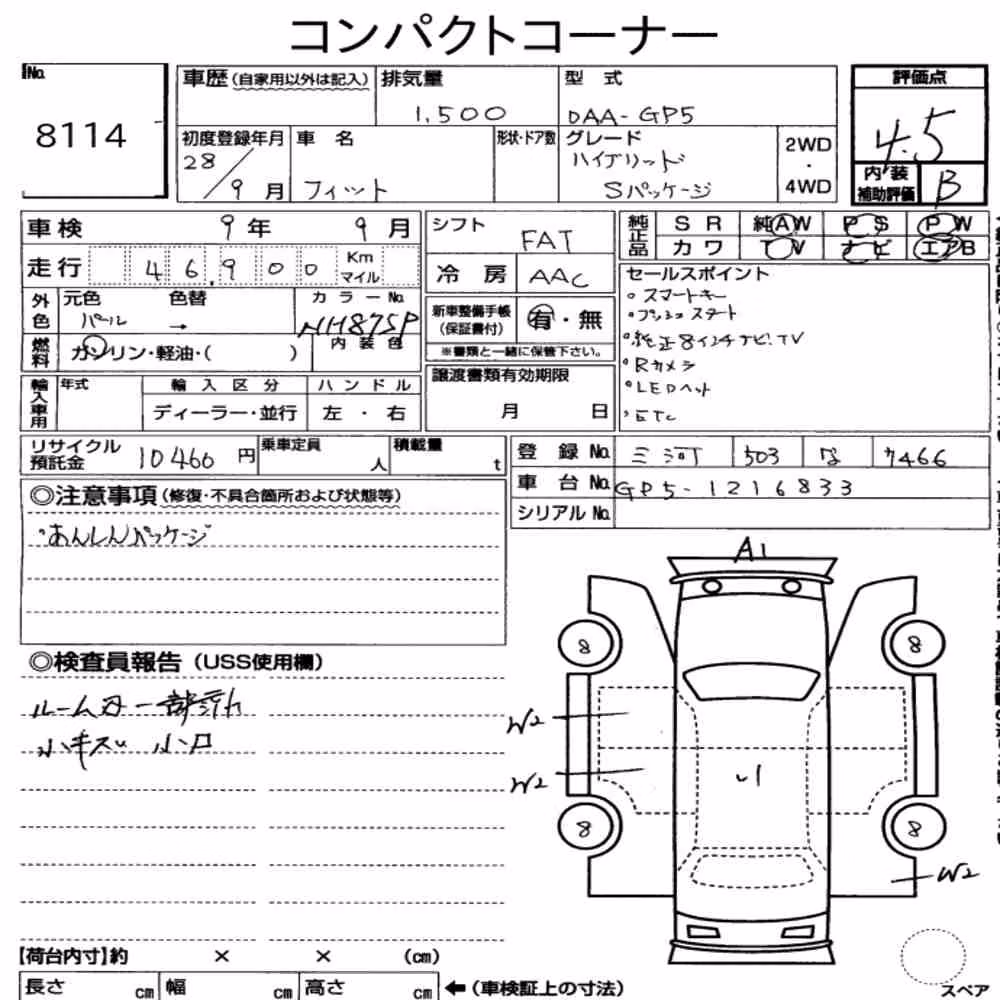 コンパクトコーナー
No. 8114
車歴(自家用以外は記入) 排気量 1,500 型式 DAA-GP5
評価点 4.5
初度登録年月 28/9月 車名 フィット 形状・ドア数 グレード ハイブリッド Sパッケージ 2WD・4WD
内装補助評価 B
車検 9年 9月
走行 46,900 Km マイル
外色 元色 パール 色替 → カラーNo. NH875P
燃料 ガソリン・軽油・( ) 内装色
輸入車用 年式 輸入区分 ディーラー・並行 ハンドル 左・右
シフト FAT
冷房 AAC
新車整備手帳(保証書付) 有・無
※書類と一緒に保管下さい。
譲渡書類有効期限
月 日
純正品 SR 純AW PS PW
カワ TV ナビ エアB
セールスポイント
・スマートキー
・プッシュスタート
・純正8インチナビ.TV
・Rカメラ
・LEDヘット
・ETC
リサイクル預託金 10460円 乗車定員 人 積載量 t
登録No. 三河 503 な 7466
車台No. GP5-1216833
シリアルNo.
◎注意事項(修復・不具合箇所および状態等)
・あんしんパッケージ
◎検査員報告(USS使用欄)
ルーム内一部汚れ
小キズ 小凹
A1
8 8
W2
W2
8 8
W2
【荷台内寸】約 × × (cm)
長さ cm 幅 cm 高さ cm ←(車検証上の寸法)
スペア